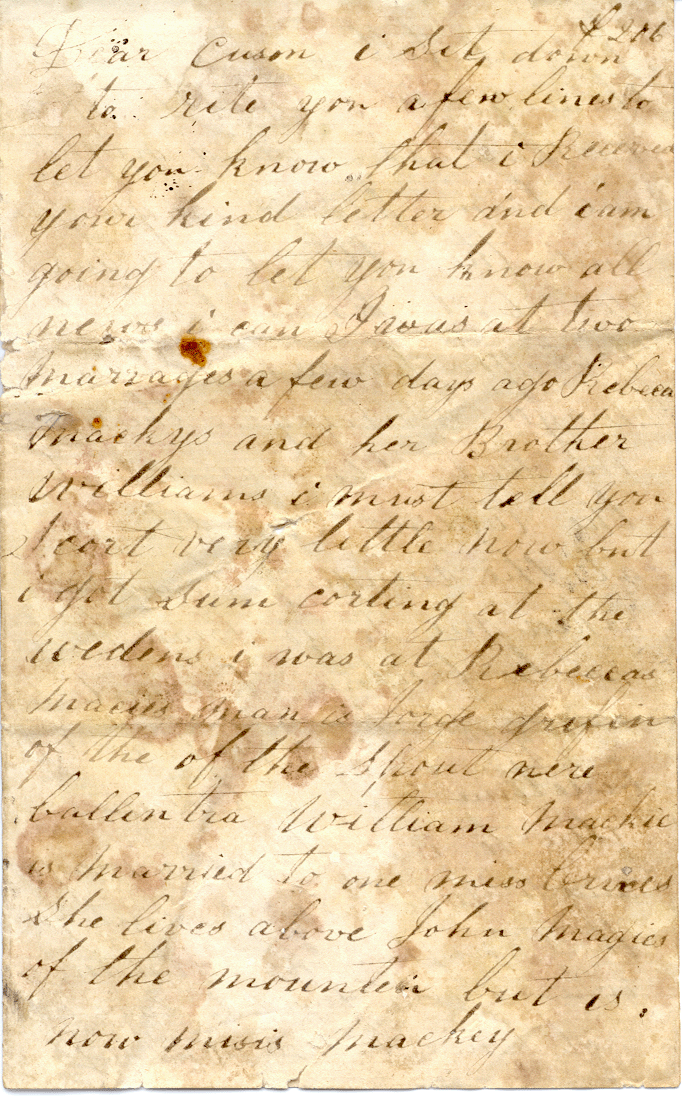 £ 206
Dear Cusin i Sit down
to rite you a few lines to
let you know that i Received
your kind letter and i am
going to let you know all
news i can I was at two
marrages a few days ago Rebeca
Mackys and her Brother
Williams i must tell you
I cort very little now but
i got Sum corting at the
wedens i was at Rebeccas
Macies man is Jorge grifin
of the of the Spout nere
ballintra William Mackie
is married to one miss
She lives above John Magies
of the mountein but is
now misis Mackey